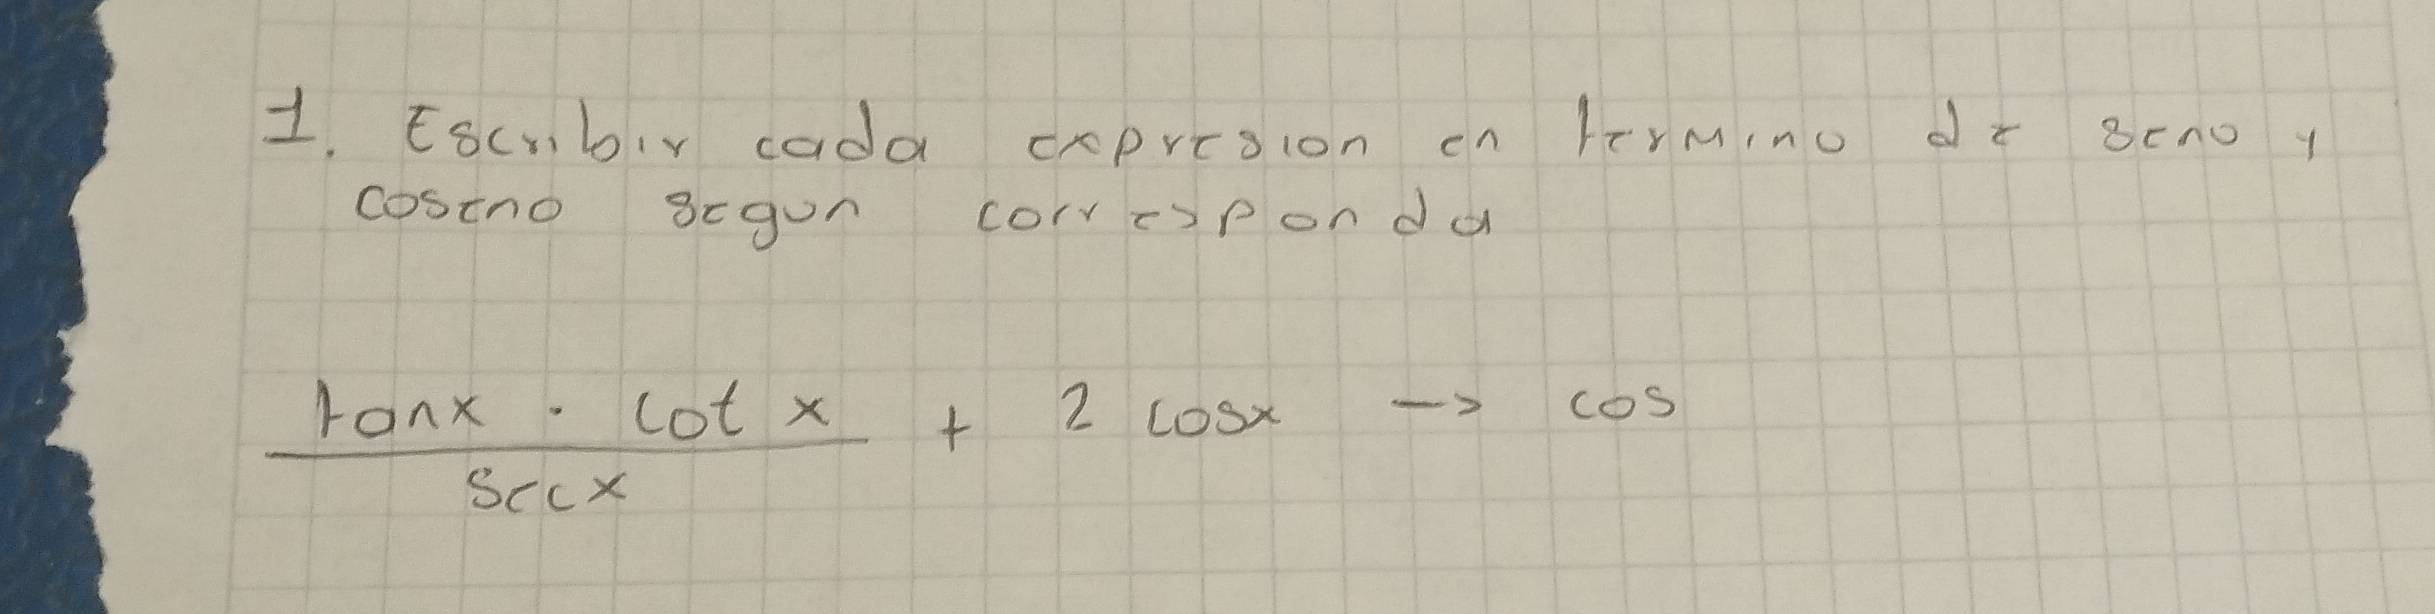 1. Escribir cada expresion en termino de seno y
coseno segun corresponda
tanx · cot x + 2 cosx -> cos
secx